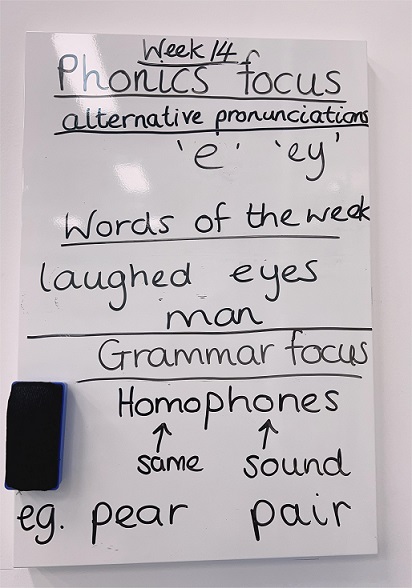 Week 14
Phonics focus
alternative pronunciations
'e' 'ey'
Words of the week
laughed eyes
man
Grammar focus
Homophones
↑ ↑
same sound
eg. pear pair